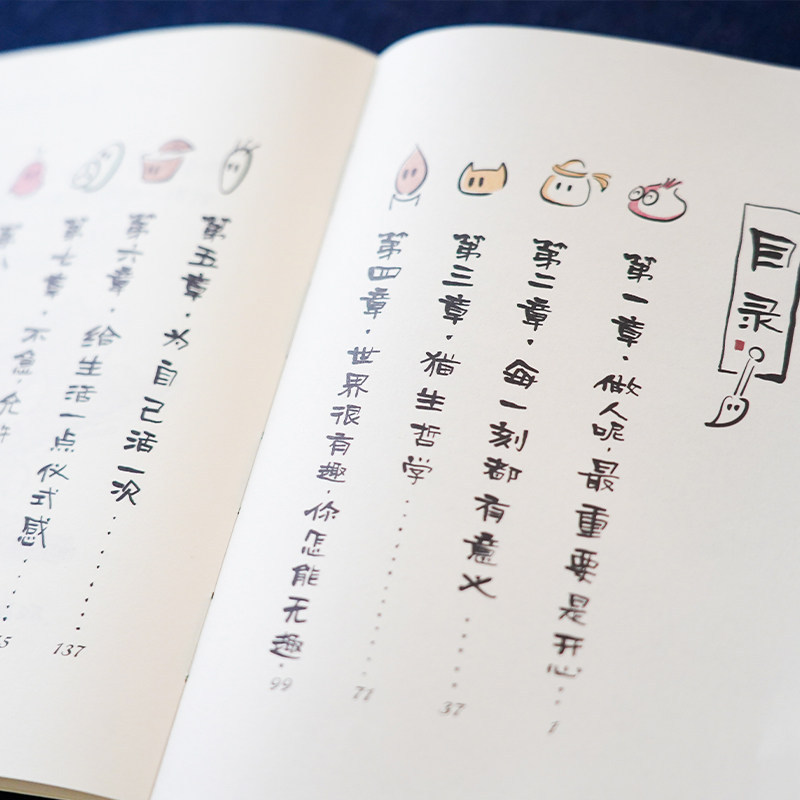 目录
第一章·做人呢，最重要是开心··1
第二章·每一刻都有意义·····37
第三章·猫生哲学··········71
第四章·世界很有趣，你怎能无趣·99
第五章·为自己活一次········137
第六章·给生活一点仪式感·····5
第七章·不急，允许
第八